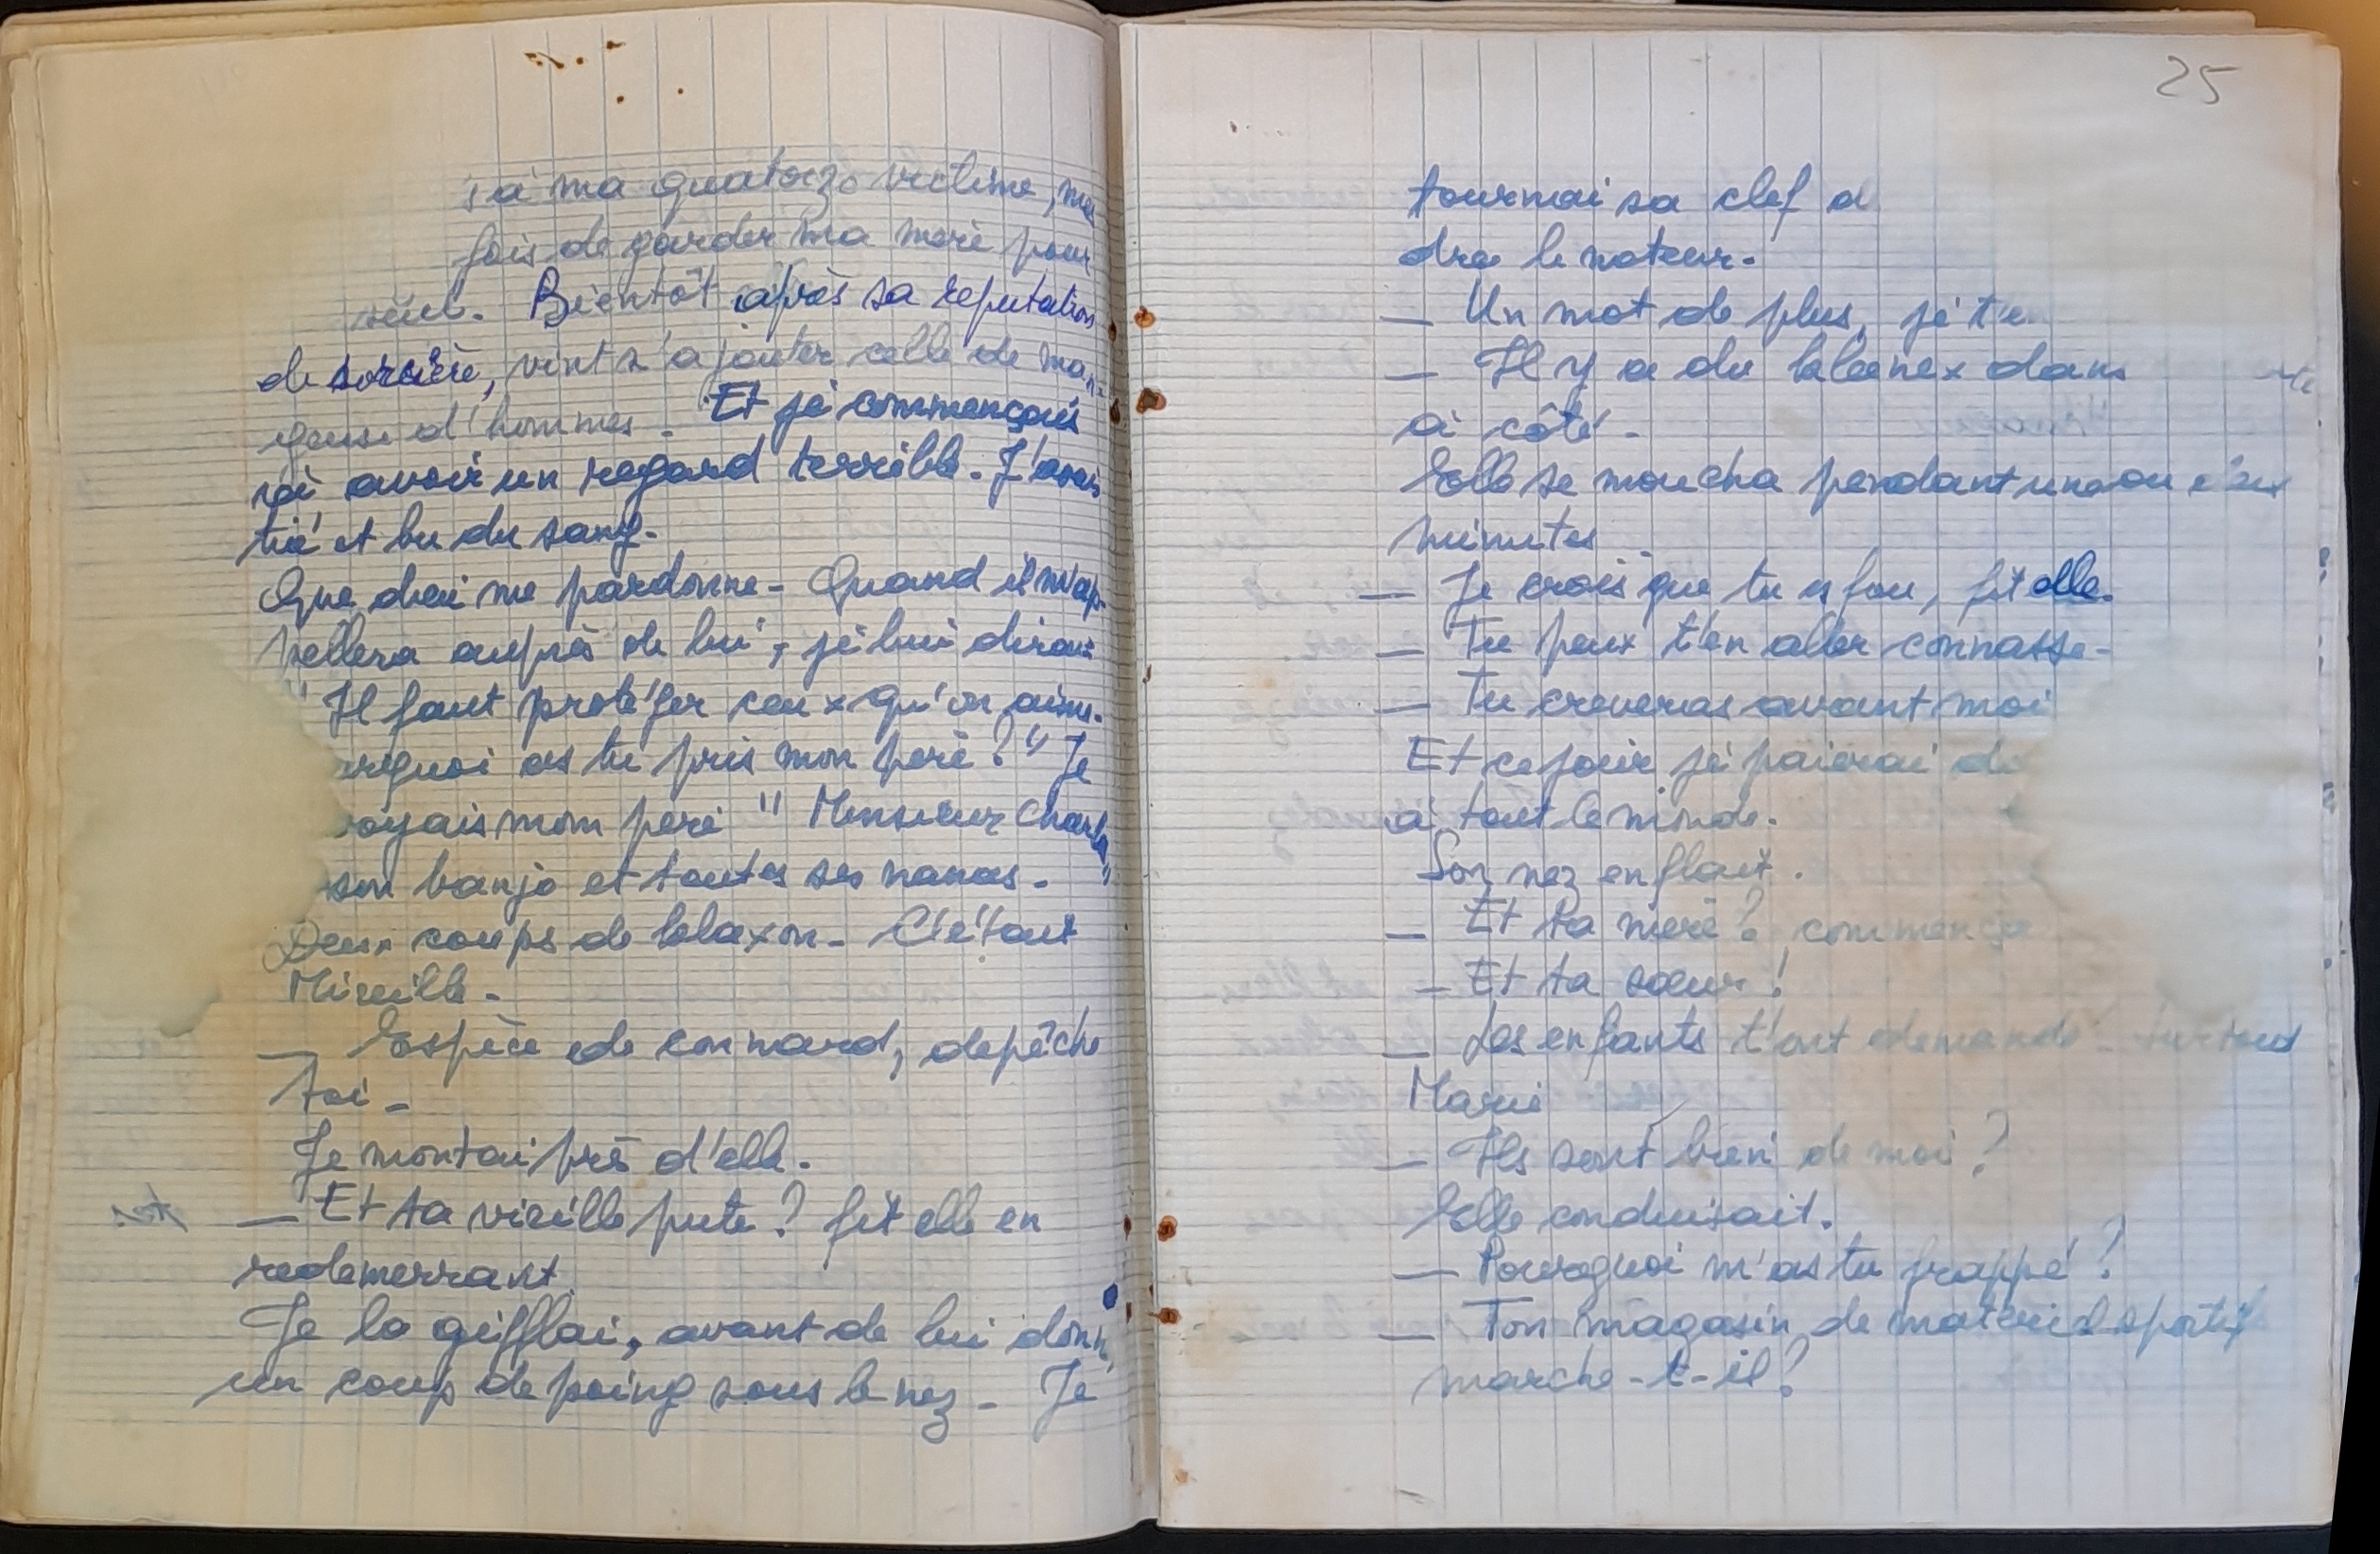 à ma quatorze victime, ma
fois de garder ma mère pour
seul. Bientôt après sa reputation
de sorcière, vint s'ajouter celle de man-
geuse d'hommes. Et je commençais
à avoir un regard terrible. J'avais
tué et bu du sang.
Que dieu me pardonne - Quand il m'ap-
pellera auprès de lui, je lui dirais
" Il faut protéger ceux qu'on aime.
urquoi as tu pris mon père ? " Je
voyais mon père " Monsieur Charles"
son banjo et toutes ses nanas -
Deux coups de klaxon - C'était
Mireille -
— Espèce de connard, depêche
toi -
Je montai près d'elle.
— Et ta vieille pute ? fit elle en
redemerrant
Je la gifflai, avant de lui donn
un coup de poing sous le nez - Je
25
tournai sa clef d
dre le moteur.
— Un mot de plus, je t'e
— Il y a du kleenex dans
à côté -
Elle se moucha pendant une ou deux
minutes
— Je crois que tu es fou, fit elle.
— Tu peux t'en aller connasse -
— Tu creveras avant moi
Et ce jour je paierai de
à tout le monde.
Son nez enflait.
— Et ta mère ? commença
— Et ta sœur !
— Les enfants t'ont demandé - surtout
Marie
— Ils sont bien de moi ?
Elle conduisait.
— Pourquoi m'as tu frappé ?
— Ton magasin de materiel sportif
marche-t-il ?